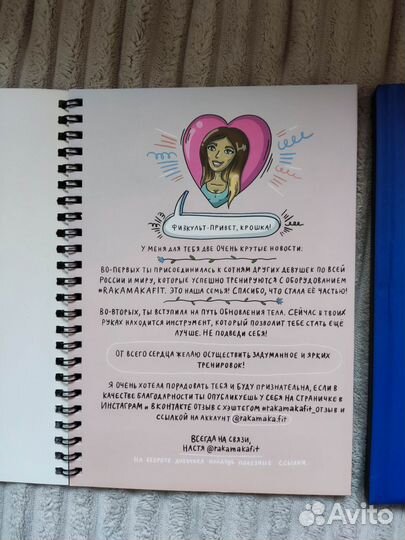 ФИЗКУЛЬТ-ПРИВЕТ, КРОШКА!
У МЕНЯ ДЛЯ ТЕБЯ ДВЕ ОЧЕНЬ КРУТЫЕ НОВОСТИ:
ВО-ПЕРВЫХ ТЫ ПРИСОЕДИНИЛАСЬ К СОТНЯМ ДРУГИХ ДЕВУШЕК ПО ВСЕЙ
РОССИИ И МИРУ, КОТОРЫЕ УСПЕШНО ТРЕНИРУЮТСЯ С ОБОРУДОВАНИЕМ
#RAKAMAKAFIT. ЭТО НАША СЕМЬЯ! СПАСИБО, ЧТО СТАЛА ЕЁ ЧАСТЬЮ!
ВО-ВТОРЫХ, ТЫ ВСТУПИЛА НА ПУТЬ ОБНОВЛЕНИЯ ТЕЛА. СЕЙЧАС В ТВОИХ
РУКАХ НАХОДИТСЯ ИНСТРУМЕНТ, КОТОРЫЙ ПОЗВОЛИТ ТЕБЕ СТАТЬ ЕЩЕ
ЛУЧШЕ. НЕ ПОДВЕДИ СЕБЯ!
ОТ ВСЕГО СЕРДЦА ЖЕЛАЮ ОСУЩЕСТВИТЬ ЗАДУМАННОЕ И ЯРКИХ
ТРЕНИРОВОК!
Я ОЧЕНЬ ХОТЕЛА ПОРАДОВАТЬ ТЕБЯ И БУДУ ПРИЗНАТЕЛЬНА, ЕСЛИ В
КАЧЕСТВЕ БЛАГОДАРНОСТИ ТЫ ОПУБЛИКУЕШЬ У СЕБЯ НА СТРАНИЧКЕ В
ИНСТАГРАМ И ВКОНТАКТЕ ОТЗЫВ С ХЭШТЕГОМ #rakamakafit_ОТЗЫВ И
ССЫЛКОЙ НА АККАУНТ @rakamaka.fit
ВСЕГДА НА СВЯЗИ,
НАСТЯ @rakamakafit
НА ОБОРОТЕ ДНЕВНИКА НАЙДЕШЬ ПОЛЕЗНЫЕ ССЫЛКИ.
Avito